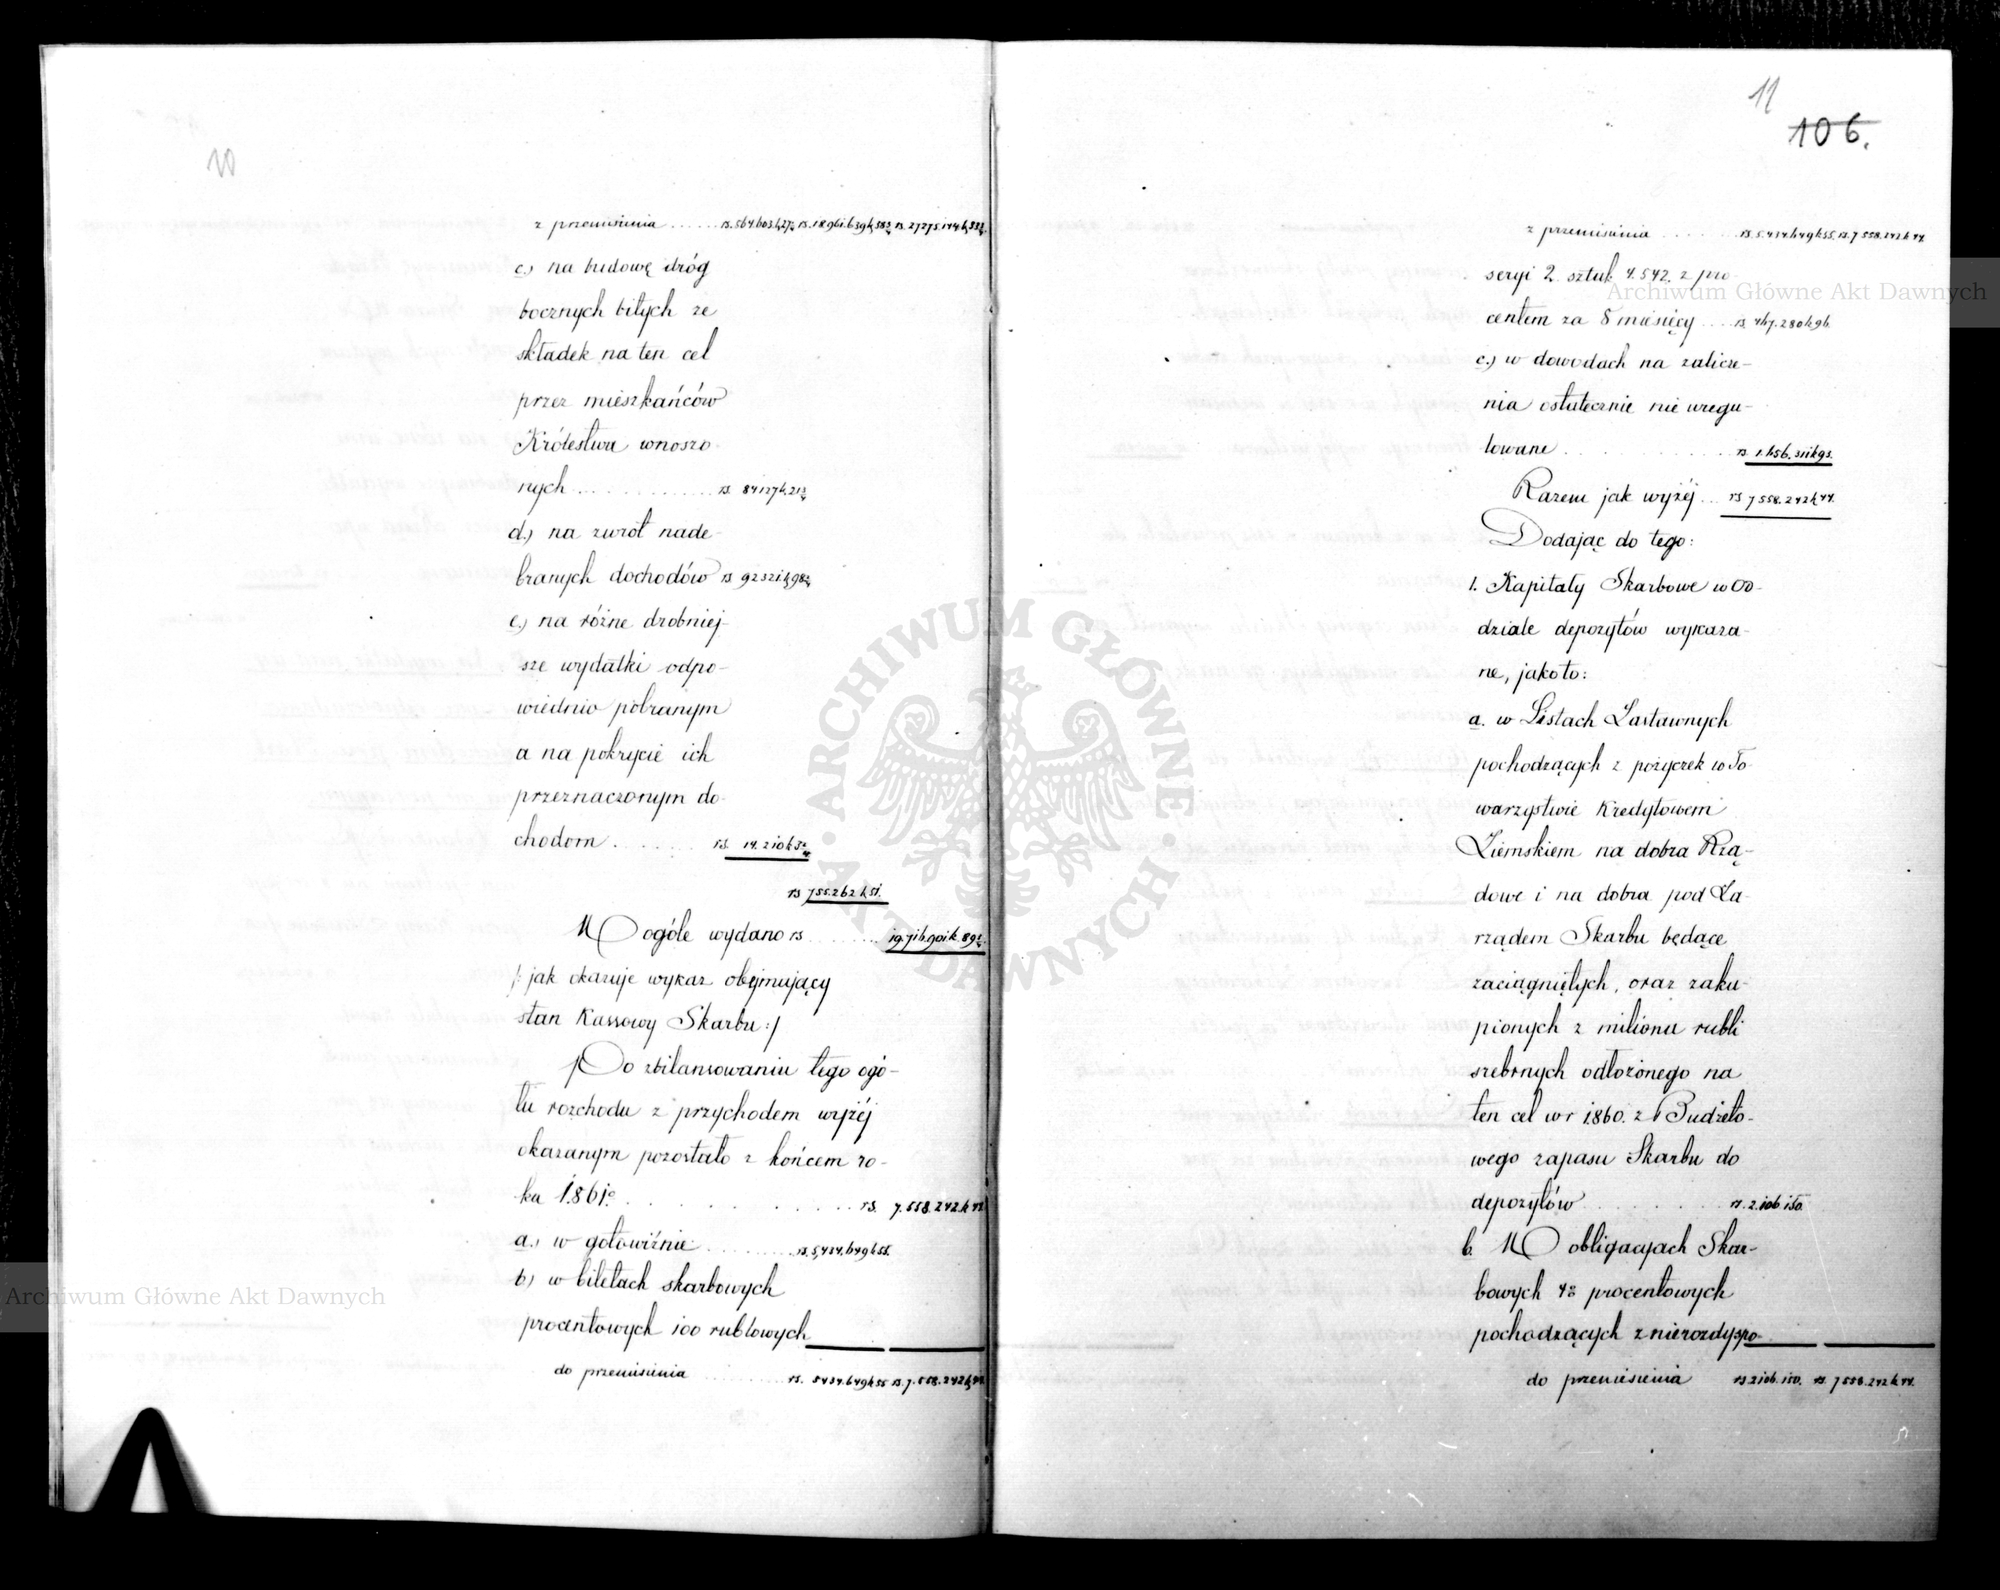 10
z przeniesienia ...... rs. 564.603 k. 27 rs. 18.961.639 k. 58 rs. 27.275.144 k. 33
c.) na budowę dróg
bocznych bitych ze
składek na ten cel
przez mieszkańców
Królestwa wnoszo-
nych ............ rs. 84127 k. 21
d.) na zwrot nade-
branych dochodów rs 92321 k. 98
e.) na różne drobniej-
sze wydatki odpo-
wiednio pobranym
a na pokrycie ich
przeznaczonym do-
chodom ....... rs. 14.210 k 3
rs 755.262 k 51.
W ogóle wydano rs ....... 19.716.901 k. 89
/: jak okazuje wykaz obejmujący
stan Kassowy Skarbu :/
Do zbilansowaniu tego ogó-
łu rozchodu z przychodem wyżéj
okazanym pozostało z końcem ro-
ku 1861o ........... rs. 7.558.242 k 44
a.) w gotowiźnie ......... rs. 5,434.649 k 55.
b) w biletach skarbowych
procentowych 100 rublowych
do przeniesienia ......... rs. 5434.649 k 55 rs. 7.558.242 k 44
11
106.
z przeniesienia ....... rs. 5.434.649 k 55. rs. 7 558.242 k 44.
seryi 2. sztuk 4.542. z pro-
centem za 8 miesięcy .... rs. 467.280 k 96.
c.) w dowodach na zalicze-
nia ostatecznie nie uregu-
lowane ............ rs 1.656.311 k 93.
Razem jak wyżéj ... rs 7 558.242 k 44.
Dodając do tego:
1. Kapitały Skarbowe w Od-
dziale depozytów wykaza-
ne, jako to:
a. w Listach Zastawnych
pochodzących z pożyczek w To-
warzystwie Kredytowem
Ziemskiem na dobra Rzą-
dowe i na dobra pod Za-
rządem Skarbu będące
zaciągniętych, oraz zaku-
pionych z milionu rubli
srebrnych odłożonego na
ten cel w r 1860. z Budżeto-
wego zapasu Skarbu do
depozytów ........ rs. 2.106.150.
b. W obligacyach Skar-
bowych 4% procentowych
pochodzących z nierozdyspo-
do przeniesienia rs 2106.150. rs. 7 558.242 k 44.
Archiwum Główne Akt Dawnych
Archiwum Główne Akt Dawnych
ARCHIWUM GŁÓWNE AKT DAWNYCH